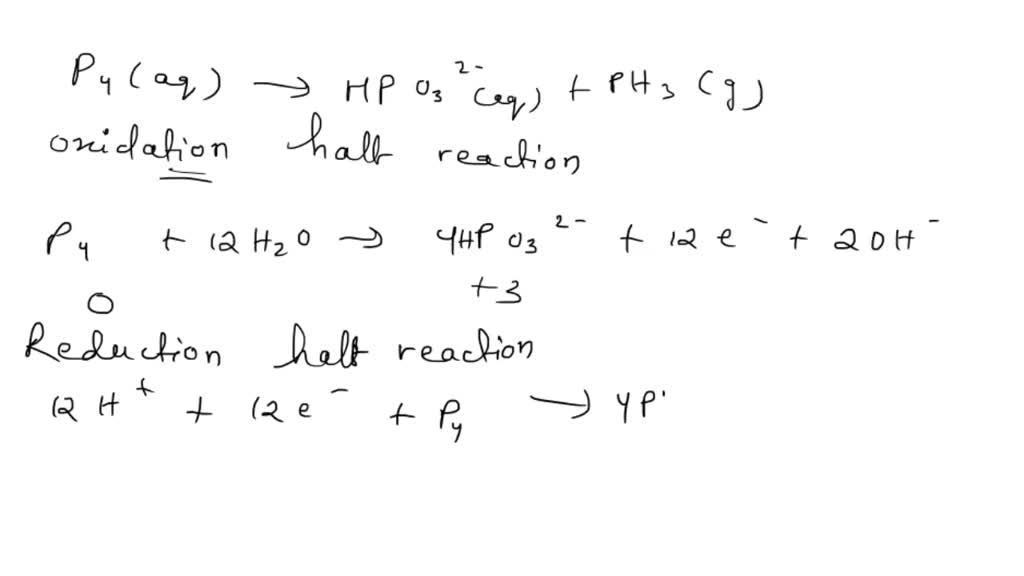 P4 (aq) → HPO3^2- (aq) + PH3 (g)
oxidation half reaction
P4 + 12 H2O → 4HPO3^2- + 12 e^- + 20H^-
0 +3
Reduction half reaction
12 H^+ + 12 e^- + P4 → 4P